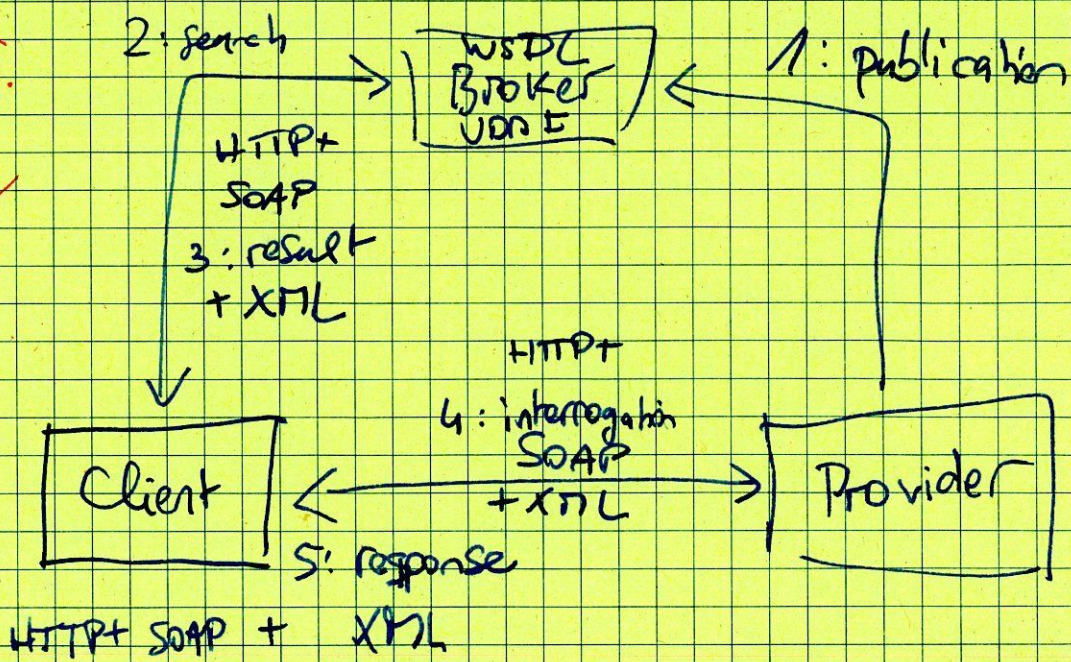 2: search
WSDL
Broker
UDDI
1: publication
HTTP+
SOAP
3: result
+ XML
HTTP+
4: interrogation
SOAP
+ XML
Client
Provider
5: response
HTTP+ SOAP + XML